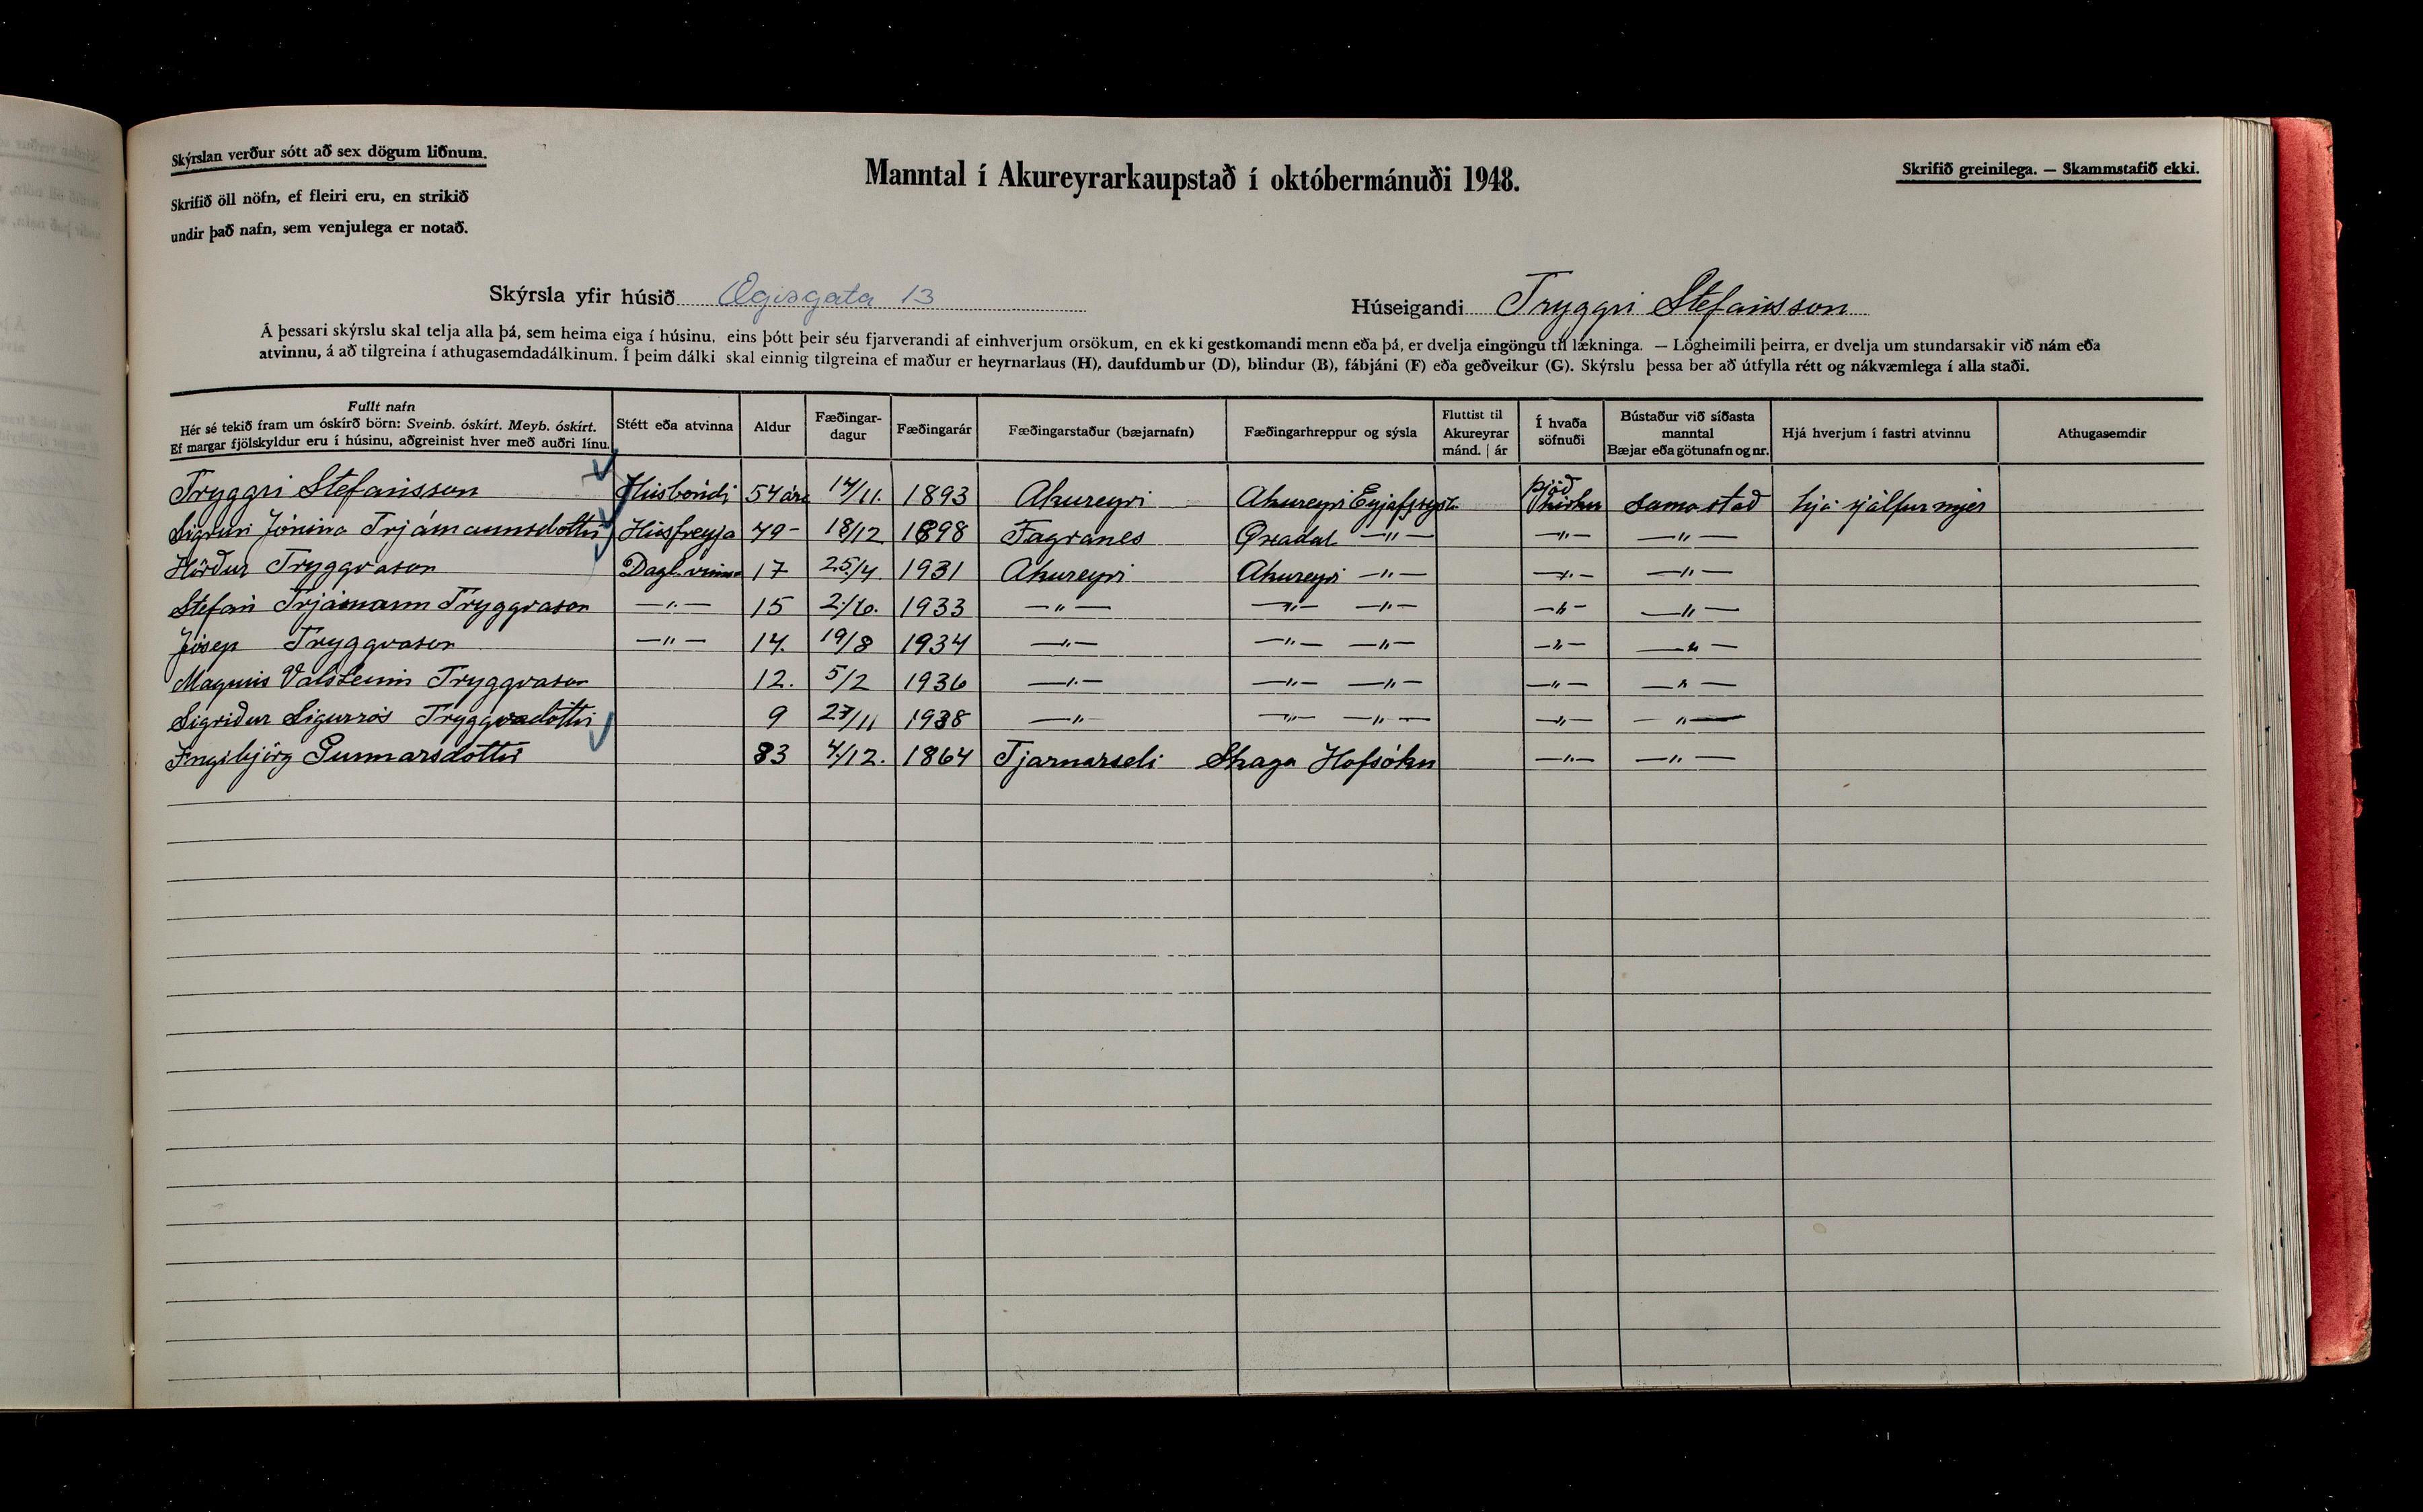 Skýrslan verður sótt að sex dögum liðnum.
Skrifið öll nöfn, ef fleiri eru, en strikið
undir það nafn, sem venjulega er notað.
Manntal í Akureyrarkaupstað í októbermánuði 1948.
Skrifið greinilega. — Skammstafið ekki.
Skýrsla yfir húsið Ægisgata 13
Húseigandi Tryggvi Stefánsson
Á þessari skýrslu skal telja alla þá, sem heima eiga í húsinu, eins þótt þeir séu fjarverandi af einhverjum orsökum, en ekki gestkomandi menn eða þá, er dvelja eingöngu til lækninga. — Lögheimili þeirra, er dvelja um stundarsakir við nám eða
atvinnu, á að tilgreina í athugasemdadálkinum. Í þeim dálki skal einnig tilgreina ef maður er heyrnarlaus (H), daufdumbur (D), blindur (B), fábjáni (F) eða geðveikur (G). Skýrslu þessa ber að útfylla rétt og nákvæmlega í alla staði.
Fullt nafn
Hér sé tekið fram um óskírð börn: Sveinb. óskírt. Meyb. óskírt.
Ef margar fjölskyldur eru í húsinu, aðgreinist hver með auðri línu.
Stétt eða atvinna
Aldur
Fæðingar-
dagur
Fæðingarár
Fæðingarstaður (bæjarnafn)
Fæðingarhreppur og sýsla
Fluttist til
Akureyrar
mánd. | ár
Í hvaða
söfnuði
Bústaður við síðasta
manntal
Bæjar eða götunafn og nr.
Hjá hverjum í fastri atvinnu
Athugasemdir
Tryggvi Stefánsson Húsbóndi 54 ára 14/11. 1893 Akureyri Akureyri Eyjafjsýsl. Þjóð kirkju sama stað hjá sjálfum mjer
Sigrún Jónína Trjámannsdóttir Húsfreyja 49 - 18/12 1898 Fagranes Øxadal —"— —"— —"—
Hörður Tryggvason Dagl.vinna 17 25/4. 1931 Akureyri Akureyri —"— —"— —"—
Stefán Trjámann Tryggvason —"— 15 2/10. 1933 —"— —"— —"— —"— —"—
Jósep Tryggvason —"— 14. 19/8 1934 —"— —"— —"— —"— —"—
Magnús Valsteinn Tryggvason 12. 5/2 1936 —"— —"— —"— —"— —"—
Sigríður Sigurrós Tryggvadóttir 9 27/11 1938 —"— —"— —"— —"— —"—
Ingibjörg Gunnarsdóttir 83 4/12. 1864 Tjarnarseli Skaga Hofsókn —"— —"—